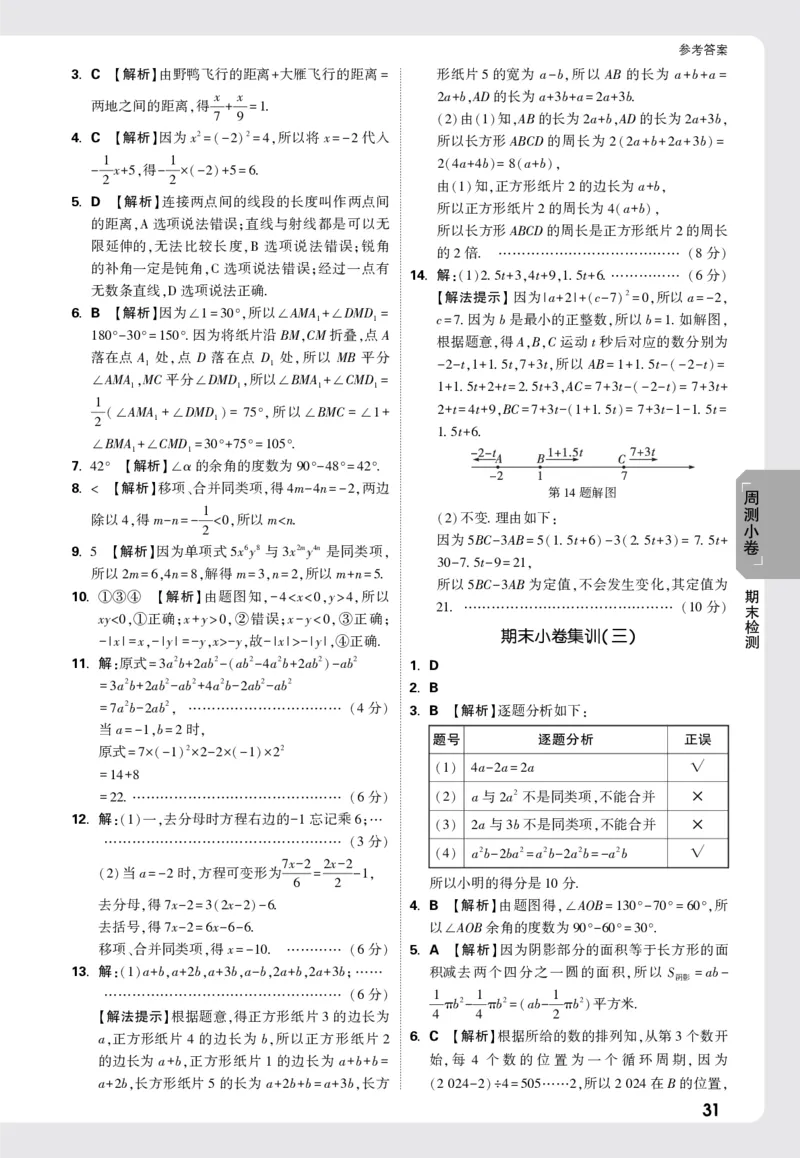 参考答案
3. C 【解析】由野鸭飞行的距离+大雁飞行的距离=
两地之间的距离,得x/7+x/9=1.
4. C 【解析】因为x²=(-2)²=4,所以将x=-2代入
-1/2x+5,得-1/2×(-2)+5=6.
5. D 【解析】连接两点间的线段的长度叫作两点间
的距离,A选项说法错误;直线与射线都是可以无
限延伸的,无法比较长度,B选项说法错误;锐角
的补角一定是钝角,C选项说法错误;经过一点有
无数条直线,D选项说法正确.
6. B 【解析】因为∠1=30°,所以∠AMA₁+∠DMD₁=
180°-30°=150°.因为将纸片沿BM,CM折叠,点A
落在点A₁处,点D落在点D₁处,所以MB平分
∠AMA₁,MC平分∠DMD₁,所以∠BMA₁+∠CMD₁=
1/2(∠AMA₁+∠DMD₁)=75°,所以∠BMC=∠1+
∠BMA₁+∠CMD₁=30°+75°=105°.
7. 42° 【解析】∠α的余角的度数为90°-48°=42°.
8. < 【解析】移项、合并同类项,得4m-4n=-2,两边
除以4,得m-n=-1/2<0,所以m<n.
9. 5 【解析】因为单项式5x⁶y⁸与3x²ᵐy⁴ⁿ是同类项,
所以2m=6,4n=8,解得m=3,n=2,所以m+n=5.
10. ①③④ 【解析】由题图知,-4<x<0,y>4,所以
xy<0,①正确;x+y>0,②错误;x-y<0,③正确;
-|x|=x,-|y|=-y,x>-y,故-|x|>-|y|,④正确.
11. 解:原式=3a²b+2ab²-(ab²-4a²b+2ab²)-ab²
=3a²b+2ab²-ab²+4a²b-2ab²-ab²
=7a²b-2ab², …………………………… (4分)
当a=-1,b=2时,
原式=7×(-1)²×2-2×(-1)×2²
=14+8
=22. ……………………………………… (6分)
12. 解:(1)一,去分母时方程右边的-1忘记乘6;…
…………………………………………… (3分)
(2)当a=-2时,方程可变形为(7x-2)/6=(2x-2)/2-1,
去分母,得7x-2=3(2x-2)-6.
去括号,得7x-2=6x-6-6.
移项、合并同类项,得x=-10. ………… (6分)
13. 解:(1)a+b,a+2b,a+3b,a-b,2a+b,2a+3b;……
…………………………………………… (6分)
【解法提示】根据题意,得正方形纸片3的边长为
a,正方形纸片4的边长为b,所以正方形纸片2
的边长为a+b,正方形纸片1的边长为a+b+b=
a+2b,长方形纸片5的长为a+2b+b=a+3b,长方
形纸片5的宽为a-b,所以AB的长为a+b+a=
2a+b,AD的长为a+3b+a=2a+3b.
(2)由(1)知,AB的长为2a+b,AD的长为2a+3b,
所以长方形ABCD的周长为2(2a+b+2a+3b)=
2(4a+4b)=8(a+b),
由(1)知,正方形纸片2的边长为a+b,
所以正方形纸片2的周长为4(a+b),
所以长方形ABCD的周长是正方形纸片2的周长
的2倍. ………………………………… (8分)
14. 解:(1)2.5t+3,4t+9,1.5t+6. …………… (6分)
【解法提示】因为|a+2|+(c-7)²=0,所以a=-2,
c=7.因为b是最小的正整数,所以b=1.如解图,
根据题意,得A,B,C运动t秒后对应的数分别为
-2-t,1+1.5t,7+3t,所以AB=1+1.5t-(-2-t)=
1+1.5t+2+t=2.5t+3,AC=7+3t-(-2-t)=7+3t+
2+t=4t+9,BC=7+3t-(1+1.5t)=7+3t-1-1.5t=
1.5t+6.
-2-t A B 1+1.5t C 7+3t
-2 1 7
第14题解图
(2)不变.理由如下:
因为5BC-3AB=5(1.5t+6)-3(2.5t+3)=7.5t+
30-7.5t-9=21,
所以5BC-3AB为定值,不会发生变化,其定值为
21. ……………………………………… (10分)
期末小卷集训(三)
1. D
2. B
3. B 【解析】逐题分析如下:
题号 逐题分析 正误
(1) 4a-2a=2a √
(2) a与2a²不是同类项,不能合并 ×
(3) 2a与3b不是同类项,不能合并 ×
(4) a²b-2ba²=a²b-2a²b=-a²b √
所以小明的得分是10分.
4. B 【解析】由题图得,∠AOB=130°-70°=60°,所
以∠AOB余角的度数为90°-60°=30°.
5. A 【解析】因为阴影部分的面积等于长方形的面
积减去两个四分之一圆的面积,所以S阴影=ab-
1/4πb²-1/4πb²=(ab-1/2πb²)平方米.
6. C 【解析】根据所给的数的排列知,从第3个数开
始,每4个数的位置为一个循环周期,因为
(2 024-2)÷4=505……2,所以2 024在B的位置,
周测小卷
期末检测
31